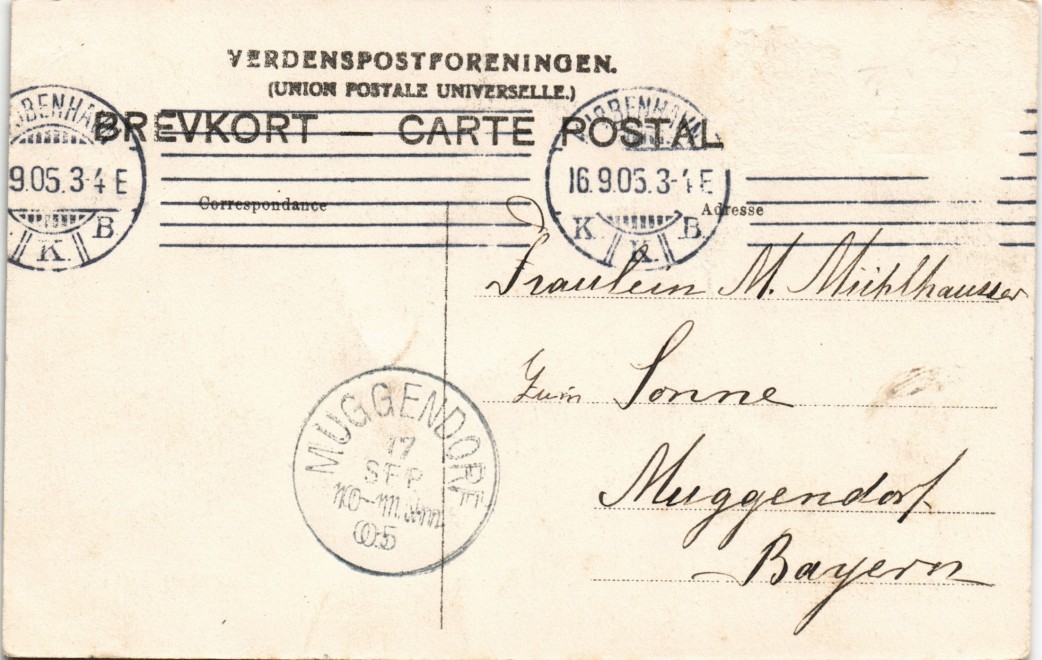 VERDENSPOSTFORENINGEN.
(UNION POSTALE UNIVERSELLE.)
BREVKORT — CARTE POSTAL
KJØBENHAVN
9.05.3-4 E
K B
KJØBENHAVN
16.9.05.3-4 E
K K B
Correspondance
Adresse
Fräulein M. Mühlhausser
Zum Sonne
Muggendorf
Bayern
MUGGENDORF
17
SEP
05